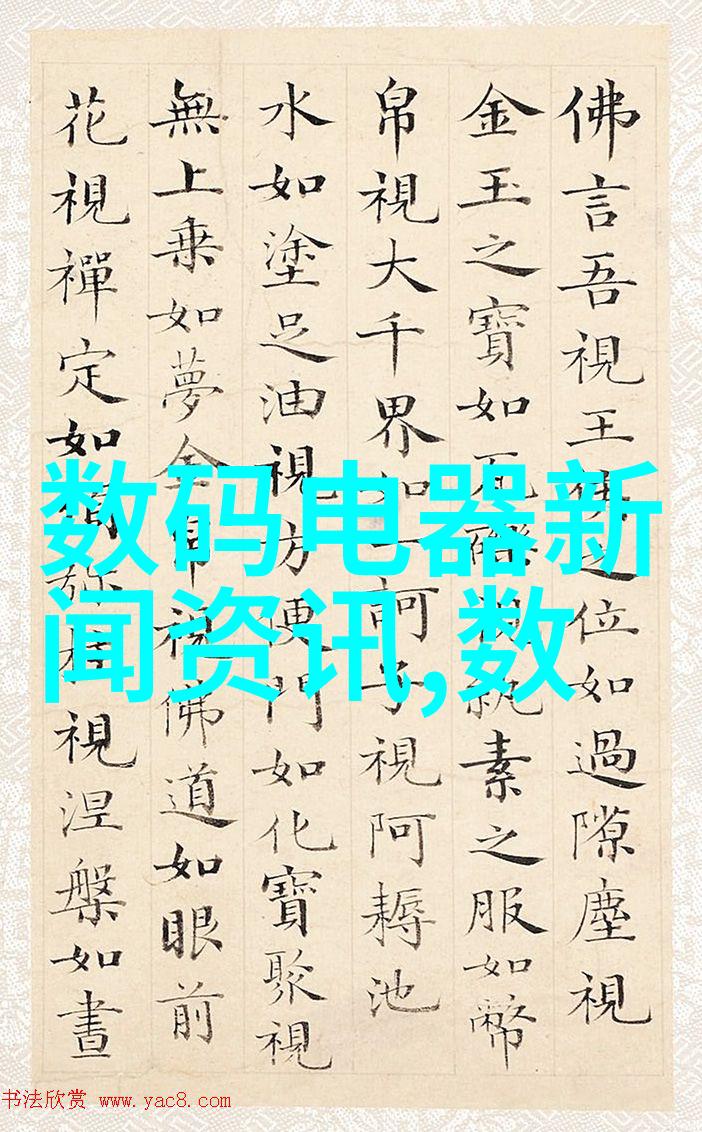 佛言吾視王侯之位如過隙塵視
金玉之寶如瓦礫視紈素之服如幣
帛視大千界如一訶子視阿耨池
水如塗足油視方便門如化寶聚視
無上乘如夢金帛視佛道如眼前
花視禪定如須彌柱視涅槃如晝
数码电器新
闻资讯,数
书法欣赏 www.yac8.com